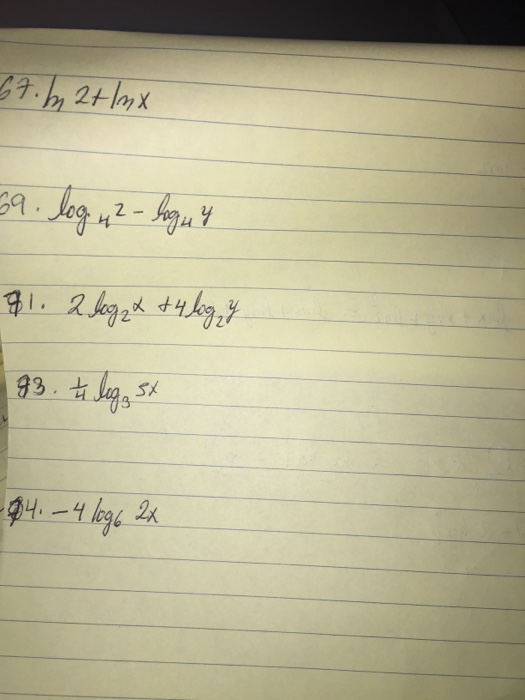 67. ln 2 + ln x
69. log₄ z - log₄ y
71. 2 log₂ x + 4 log₂ y
73. 1/4 log₃ 5x
74. -4 log₆ 2x